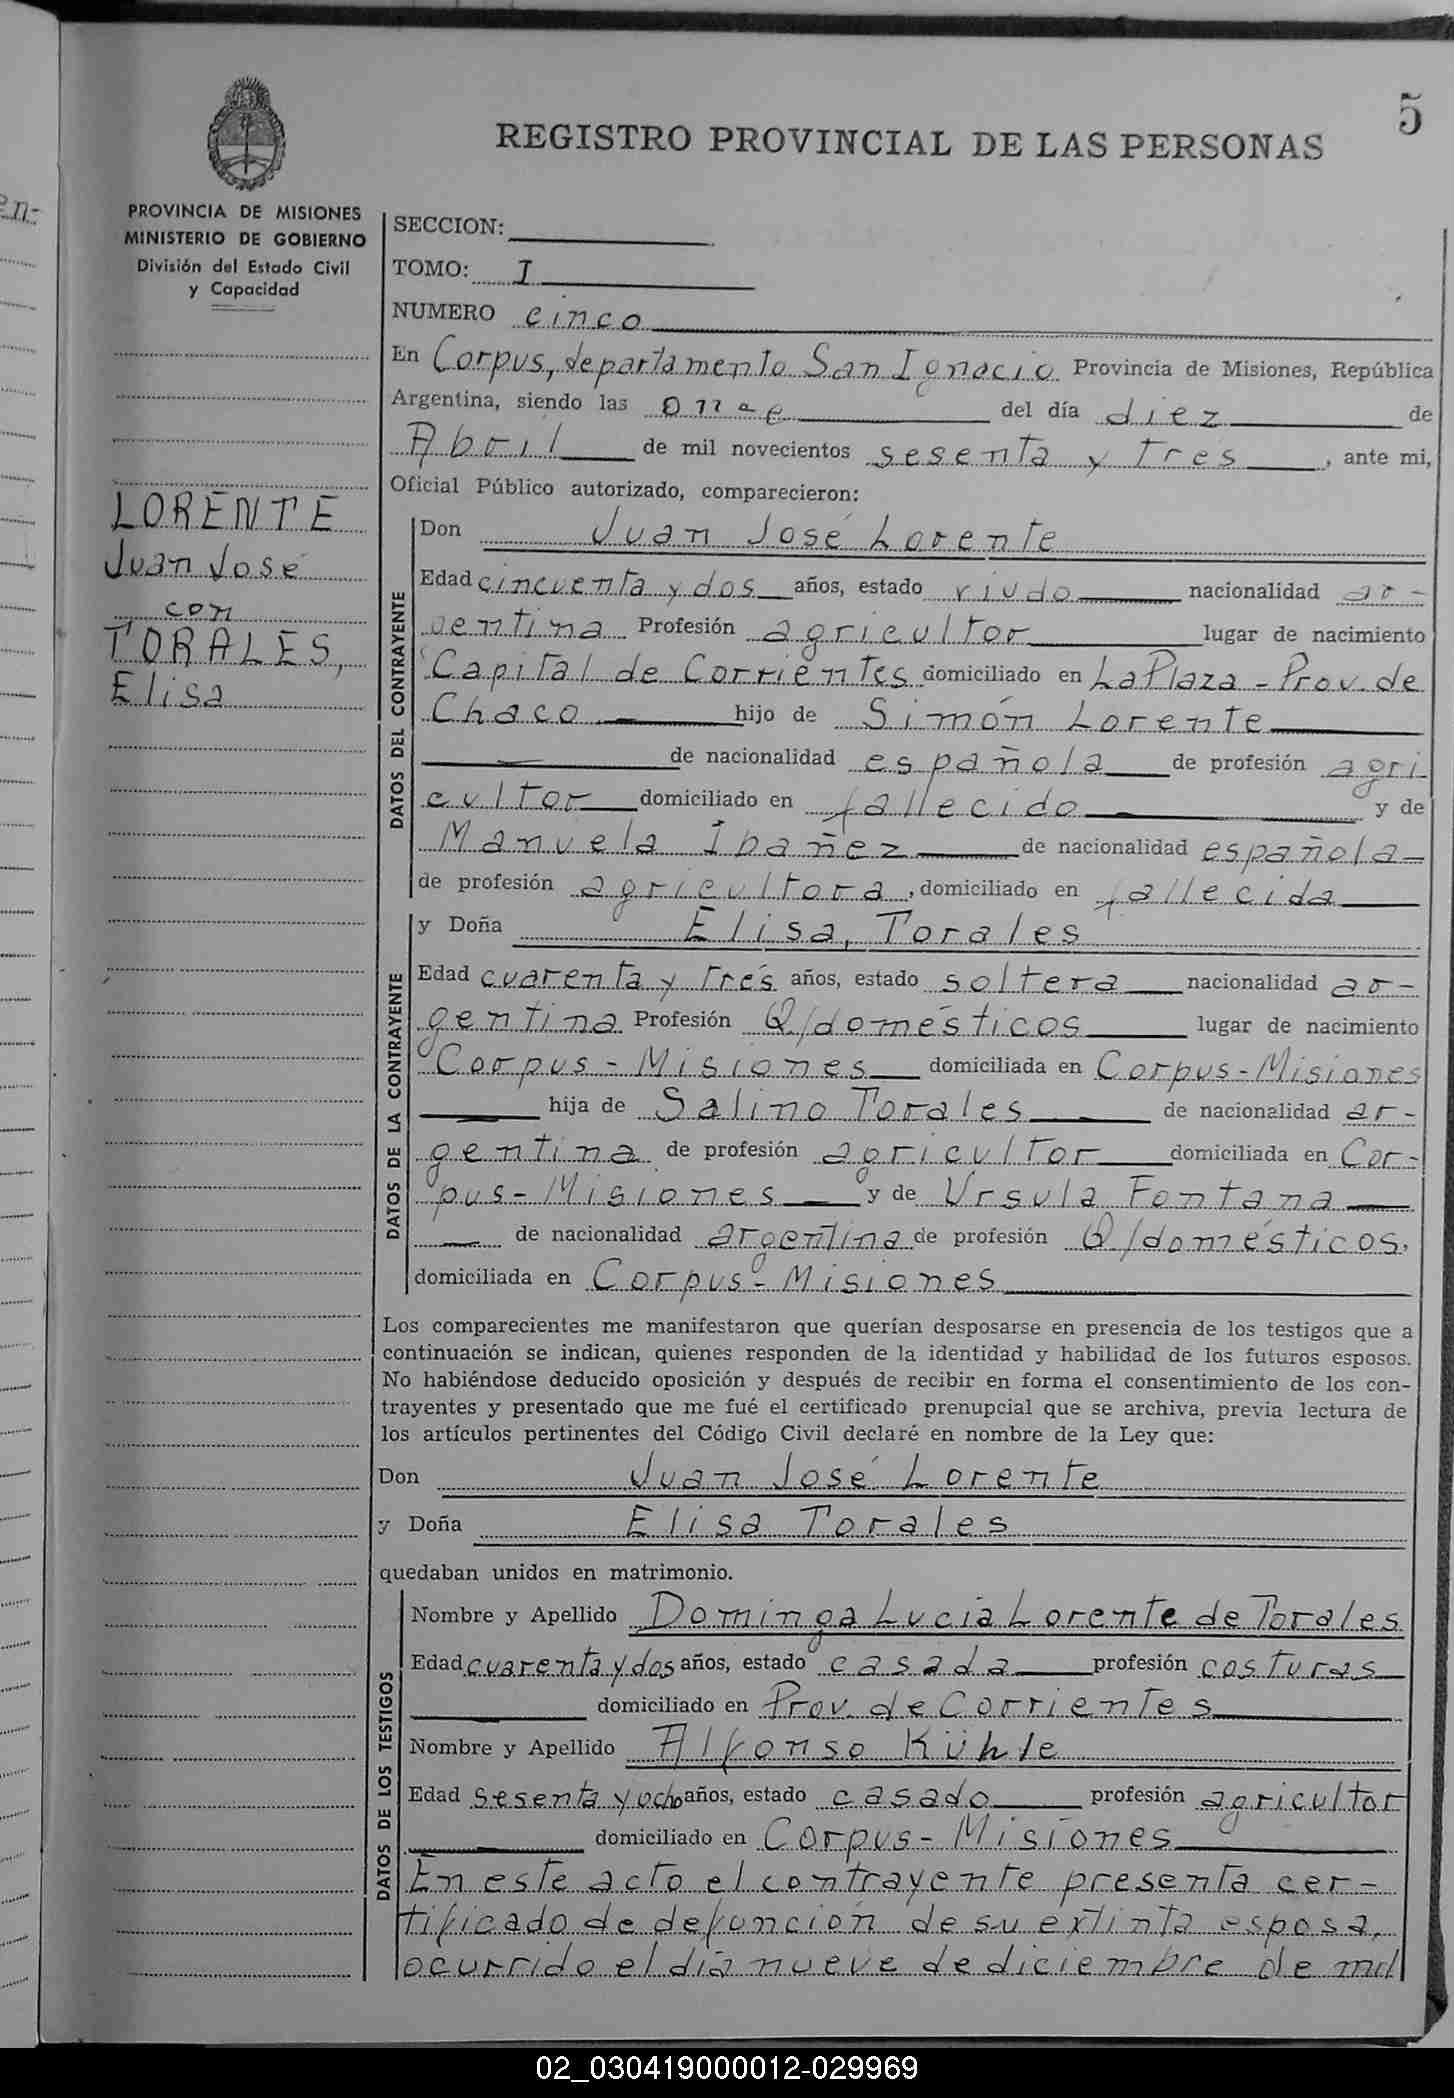 5
REGISTRO PROVINCIAL DE LAS PERSONAS
PROVINCIA DE MISIONES
MINISTERIO DE GOBIERNO
División del Estado Civil
y Capacidad
en-
LORENTE
Juan José
con
TORALES,
Elisa
SECCION:
TOMO: I
NUMERO cinco
En Corpus, departamento San Ignacio Provincia de Misiones, República
Argentina, siendo las once del día diez de
Abril de mil novecientos sesenta y tres, ante mi,
Oficial Público autorizado, comparecieron:
DATOS DEL CONTRAYENTE
Don Juan José Lorente
Edad cincuenta y dos años, estado viudo nacionalidad ar-
gentina Profesión agricultor lugar de nacimiento
Capital de Corrientes domiciliado en La Plaza - Prov. de
Chaco hijo de Simón Lorente
de nacionalidad española de profesión agri
cultor domiciliado en fallecido y de
Manuela Ibañez de nacionalidad española
de profesión agricultora, domiciliado en fallecida
DATOS DE LA CONTRAYENTE
y Doña Elisa, Torales
Edad cuarenta y trés años, estado soltera nacionalidad ar-
gentina Profesión Q/domésticos lugar de nacimiento
Corpus - Misiones domiciliada en Corpus - Misiones
hija de Salino Torales de nacionalidad ar-
gentina de profesión agricultor domiciliada en Cor-
pus - Misiones y de Ursula Fontana
de nacionalidad argentina de profesión Q/domésticos,
domiciliada en Corpus - Misiones
Los comparecientes me manifestaron que querían desposarse en presencia de los testigos que a
continuación se indican, quienes responden de la identidad y habilidad de los futuros esposos.
No habiéndose deducido oposición y después de recibir en forma el consentimiento de los con-
trayentes y presentado que me fué el certificado prenupcial que se archiva, previa lectura de
los artículos pertinentes del Código Civil declaré en nombre de la Ley que:
Don Juan José Lorente
y Doña Elisa Torales
quedaban unidos en matrimonio.
DATOS DE LOS TESTIGOS
Nombre y Apellido Dominga Lucia Lorente de Torales
Edad cuarenta y dos años, estado casada profesión costuras
domiciliado en Prov. de Corrientes
Nombre y Apellido Alfonso Kühle
Edad sesenta y ocho años, estado casado profesión agricultor
domiciliado en Corpus - Misiones
En este acto el contrayente presenta cer-
tificado de defunción de su extinta esposa,
ocurrido el día nueve de diciembre de mil
02_030419000012-029969